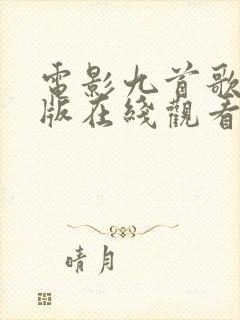 電影九首歌
版在綫觀看
晴月